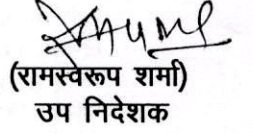 (रामस्वरूप शर्मा)
उप निदेशक